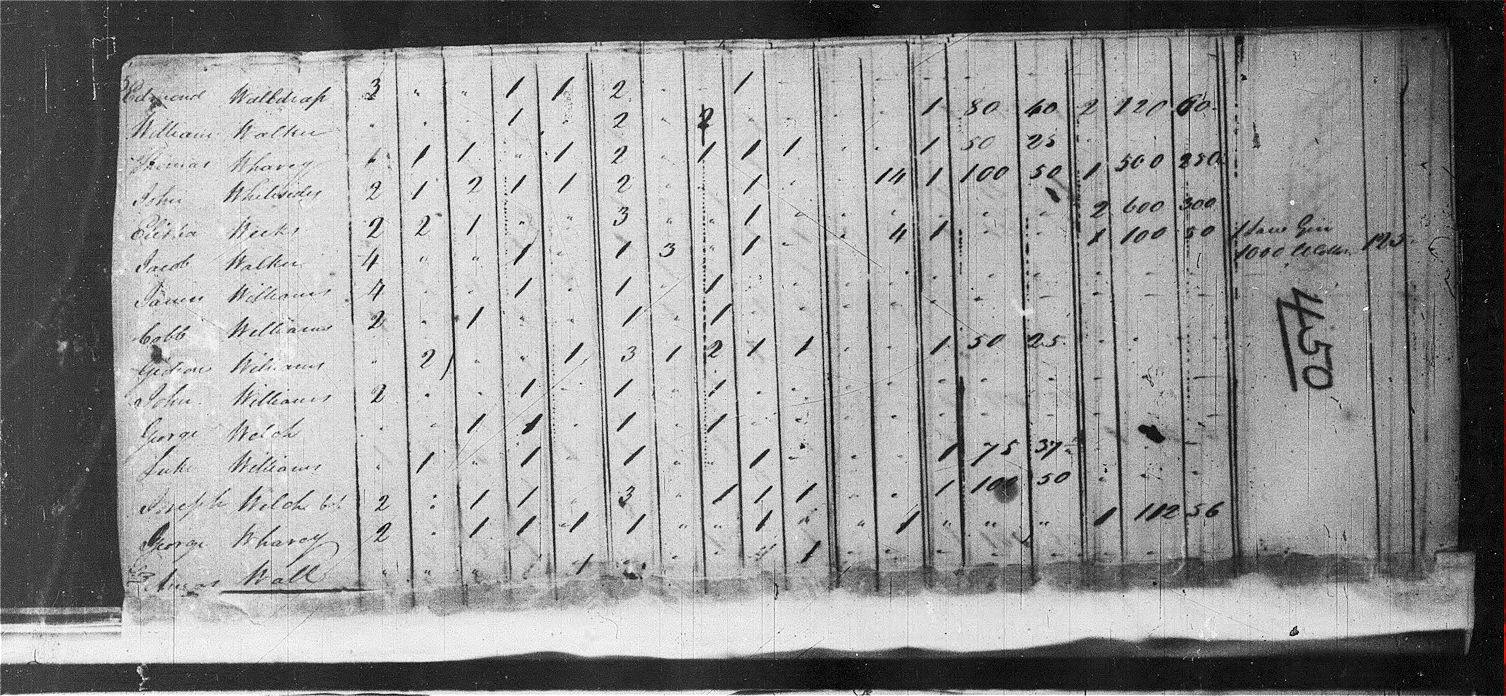 Edmond Walldrap 3 " " 1 1 2 " " 1 - - - 1 80 40 2 120 60
William Walker " " " 1 " 2 " 2 - - - - 1 50 25
Thomas Wharey 1 1 " 1 2 " 1 1 1 - - 1 100 50 1 500 250
John Whitesides 2 1 2 1 1 2 - - 1 - - 14 - - - 2 600 300
Weeks 2 2 1 " " 3 " " 1 - - 4 1 - - 1 100 50 1 Saw Gin
Jacob Walker 4 " " 1 " 1 3 " 1 - - - 1000 125
James Williams 4 - - 1 - 1 - 1
Cobb Williams 2 - 1 - - 1 - 1
Gideon Williams " 2 " " 1 3 1 2 1 1 - - 1 50 25
John Williams 2 - - 1 - 1 - 1
George Welch - - 1 1 - 1 - 1
Luke Williams " 1 " 1 - 1 - - 1 - - - 1 75 37
Joseph Welch 2 - 1 1 - 3 " 1 1 1 - - 1 100 50
George Wharey 2 - 1 1 1 1 " " 1 " " 1 " " " 1 112 56
Amos Wall " " " " 1 - - - - 1
450